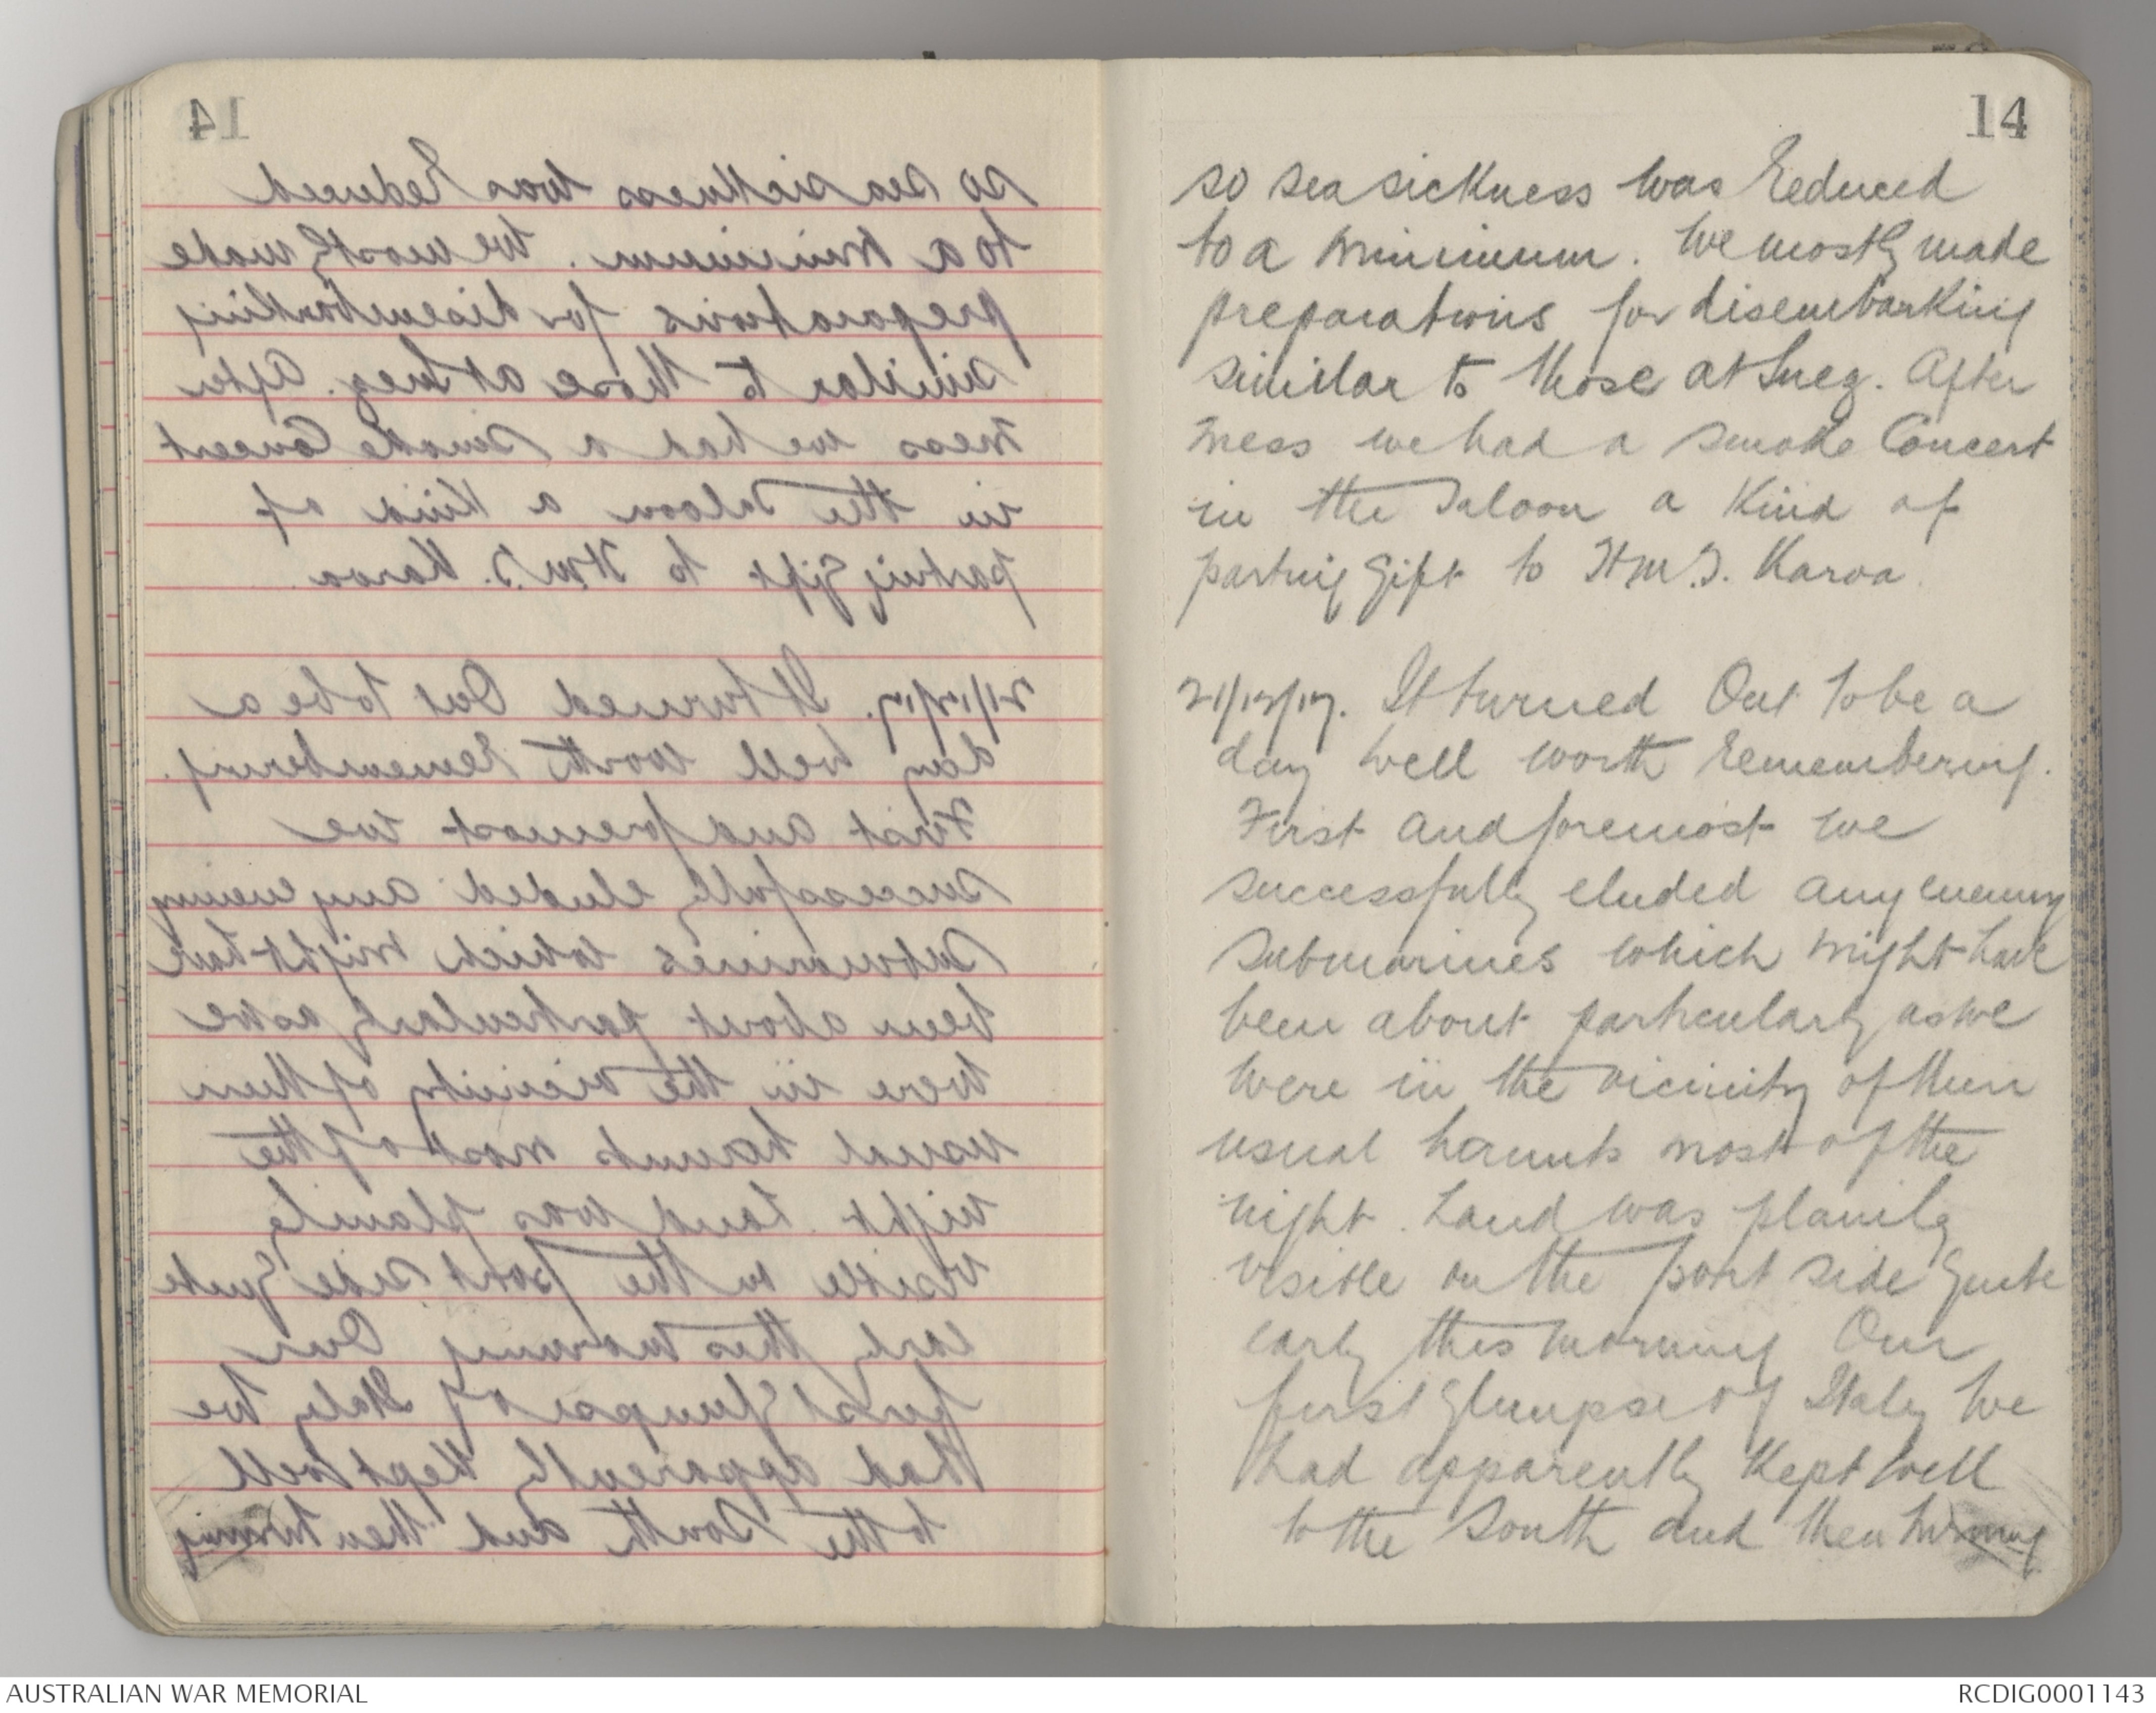 14
so sea sickness was reduced
to a minimum. We mostly made
preparations for disembarking
similar to those at Suez. After
mess we had a smoke Concert
in the Saloon a kind of
parting gift to H.M.S. Karoa.
21/12/17. It turned Out to be a
day well worth remembering.
First and foremost we
successfully eluded any enemy
submarines which might have
been about particularly as we
were in the vicinity of their
usual haunts most of the
night. Land was plainly
visible on the port side quite
early this morning Our
first glimpse of Italy We
had apparently kept well
to the South and then turning
AUSTRALIAN WAR MEMORIAL
RCDIG0001143